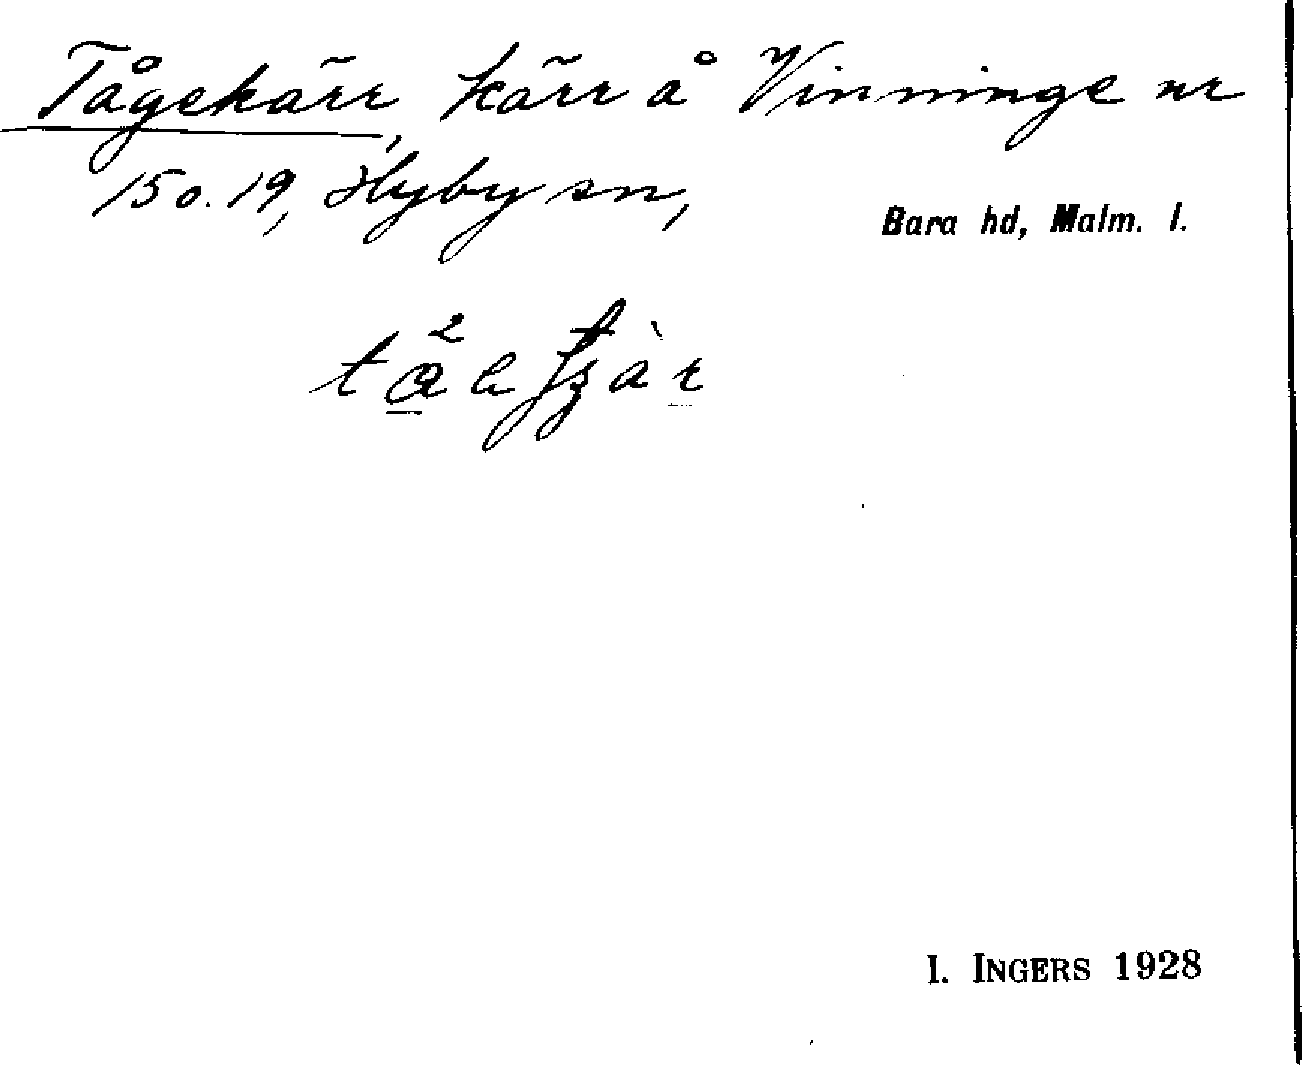 Tågekärr, kärr å Vinninge nr
15 o. 19, Hyby sn,
Bara hd, Malm. l.
I. INGERS 1928